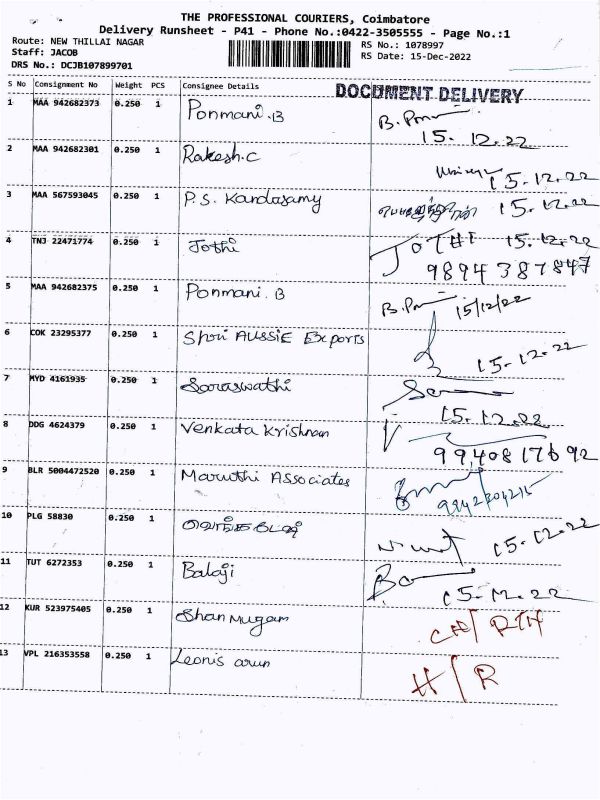 THE PROFESSIONAL COURIERS, Coimbatore
Delivery Runsheet - P41 - Phone No.:0422-3505555 - Page No.:1
Route: NEW THILLAI NAGAR
Staff: JACOB
DRS No.: DCJB107899701
RS No.: 1078997
RS Date: 15-Dec-2022
DOCUMENT DELIVERY
S No Consignment No Weight PCS Consignee Details
1 MAA 942682373 0.250 1 Ponmani.B B. 15.12.22
2 MAA 942682301 0.250 1 Rakesh.C 15.12.22
3 MAA 567593045 0.250 1 P.S. Kandasamy 15.12.22
4 TNJ 22471774 0.250 1 Jothi JOTHI 15.12.22
9894387847
5 MAA 942682375 0.250 1 Ponmani. B B. 15/12/22
6 COK 23295377 0.250 1 Shri AUSSIE Exports 15-12-22
7 MYD 4161935 0.250 1 Saraswathi 15.12.22
8 DDG 4624379 0.250 1 Venkata Krishnan 9940817692
9 BLR 5004472520 0.250 1 Maruthi Associates
10 PLG 58830 0.250 1 15-12.22
11 TUT 6272353 0.250 1 Balaji 15-12.22
12 KUR 523975405 0.250 1 Shanmugam
13 VPL 216353558 0.250 1 Leonis arun H/R